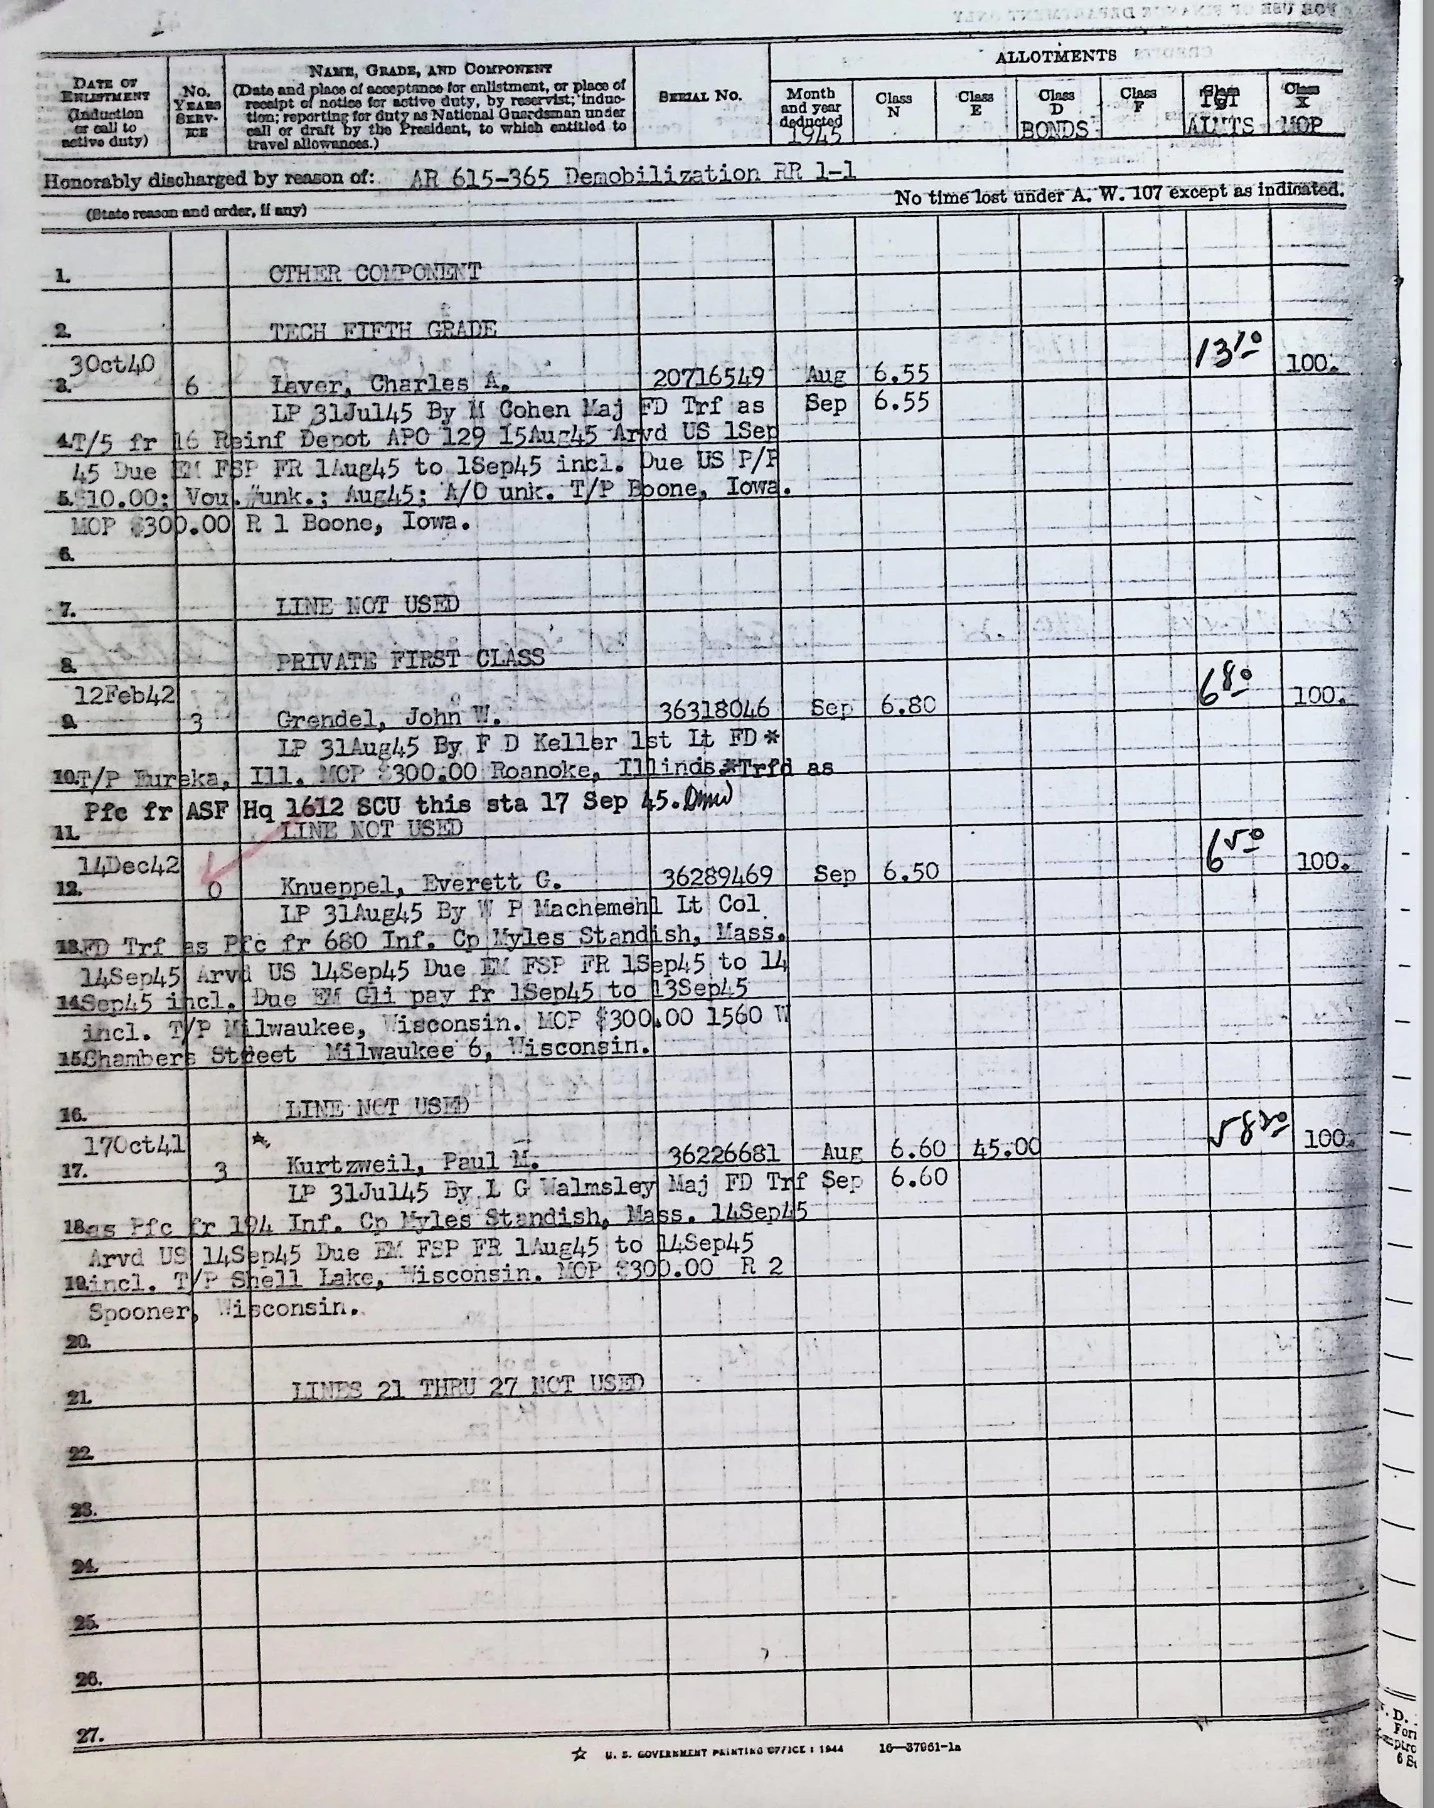 FOR USE OF FINANCE DEPARTMENT ONLY
DATE OF ENLISTMENT (Induction or call to active duty)
NO. YEARS SERV-ICE
NAME, GRADE, AND COMPONENT
(Date and place of acceptance for enlistment, or place of
receipt of notice for active duty, by reservist; induc-
tion; reporting for duty as National Guardsman under
call or draft by the President, to which entitled to
travel allowances.)
SERIAL NO.
ALLOTMENTS
Month and year deducted 1945
Class N
Class E
Class D BONDS
Class F
Class ALMTS
Class X MOP
Honorably discharged by reason of: AR 615-365 Demobilization RR 1-1
(State reason and order, if any)
No time lost under A. W. 107 except as indicated.
1. OTHER COMPONENT
2. TECH FIFTH GRADE
30ct40
3. 6 Laver, Charles A. 20716549 Aug 6.55 13 10 100.
LP 31Jul45 By M Cohen Maj FD Trf as Sep 6.55
4. T/5 fr 16 Reinf Depot APO 129 15Aug45 Arvd US 1Sep
45 Due EM FSP FR 1Aug45 to 1Sep45 incl. Due US P/P
5. $10.00: Vou. #unk.; Aug45; A/O unk. T/P Boone, Iowa.
MOP $300.00 R 1 Boone, Iowa.
6.
7. LINE NOT USED
8. PRIVATE FIRST CLASS
12Feb42
9. 3 Grendel, John W. 36318046 Sep 6.80 6 80 100.
LP 31Aug45 By F D Keller 1st Lt FD *
10. T/P Eureka, Ill. MOP $300.00 Roanoke, Illinds.*Trfd as
Pfc fr ASF Hq 1612 SCU this sta 17 Sep 45.
11. LINE NOT USED
14Dec42
12. 0 Knueppel, Everett G. 36289469 Sep 6.50 6 50 100.
LP 31Aug45 By W P Machemehl Lt Col
13. FD Trf as Pfc fr 680 Inf. Cp Myles Standish, Mass.
14Sep45 Arvd US 14Sep45 Due EM FSP FR 1Sep45 to 14
14. Sep45 incl. Due EM Gli pay fr 1Sep45 to 13Sep45
incl. T/P Milwaukee, Wisconsin. MOP $300.00 1560 W
15. Chambers Street Milwaukee 6, Wisconsin.
16. LINE NOT USED
170ct41
17. 3 Kurtzweil, Paul M. 36226681 Aug 6.60 45.00 58 20 100.
LP 31Jul45 By L G Walmsley Maj FD Trf Sep 6.60
18. as Pfc fr 194 Inf. Cp Myles Standish, Mass. 14Sep45
Arvd US 14Sep45 Due EM FSP FR 1Aug45 to 14Sep45
19. incl. T/P Shell Lake, Wisconsin. MOP $300.00 R 2
Spooner, Wisconsin.
20.
21. LINES 21 THRU 27 NOT USED
22.
23.
24.
25.
26.
27.
☆ U. S. GOVERNMENT PRINTING OFFICE : 1944 16—37961-1a